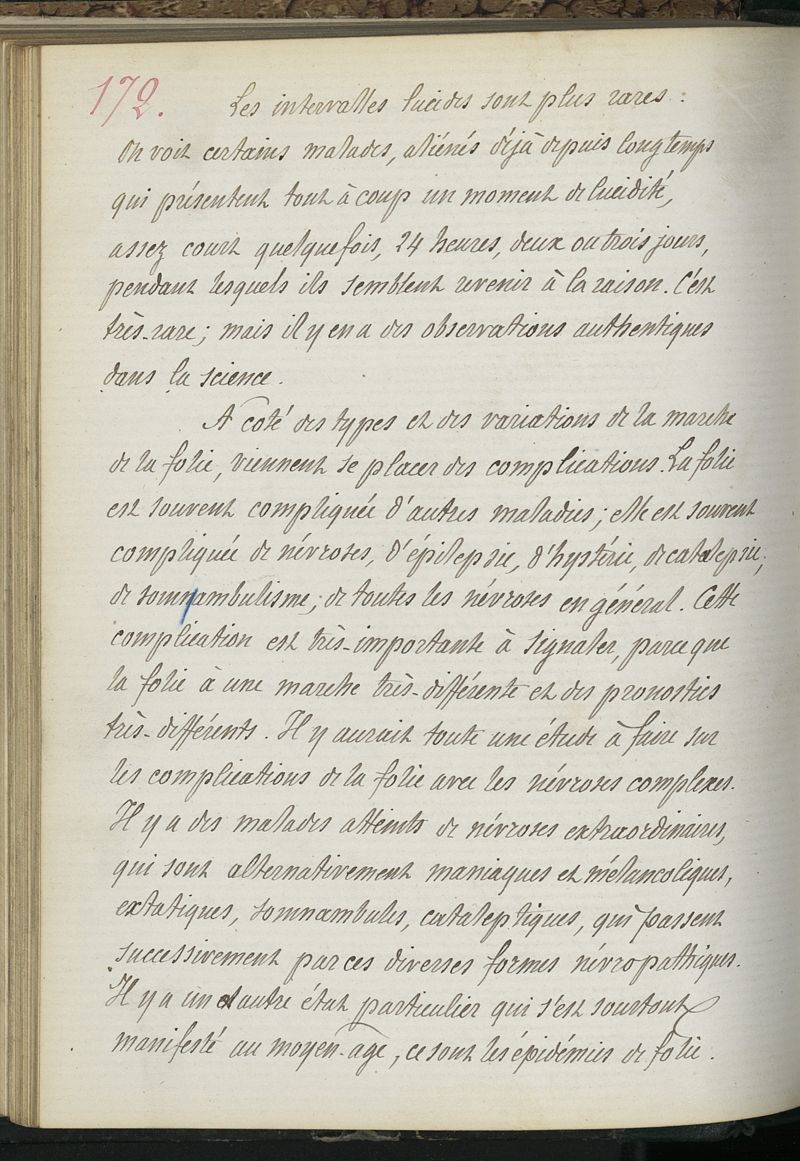 172.
Les intervalles lucides sont plus rares :
On voit certains malades, aliénés déjà depuis longtemps
qui présentent tout à coup un moment de lucidité,
assez court quelquefois, 24 heures, deux ou trois jours,
pendant lesquels ils semblent revenir à la raison. C'est
très-rare ; mais il y en a des observations authentiques
dans la science.
A côté des types et des variations de la marche
de la folie, viennent se placer des complications. La folie
est souvent compliquée d'autres maladies ; elle est souvent
compliquée de névroses, d'épilepsie, d'hystérie, de catalepsie,
de somnambulisme, de toutes les névroses en général. Cette
complication est très-importante à signaler, parce que
la folie à une marche très-différente et des pronostics
très-différents. Il y aurait toute une étude à faire sur
les complications de la folie avec les névroses complexes.
Il y a des malades atteints de névroses extraordinaires,
qui sont alternativement maniaques et mélancoliques,
extatiques, somnambules, cataleptiques, qui passent
successivement par ces diverses formes névropathiques.
Il y a un autre état particulier qui s'est sourtout
manifesté au moyen-age, ce sont les épidémies de folie.